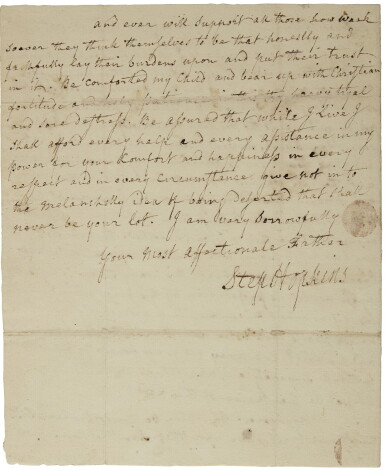 and ever will support all those how weak
soever they think themselves to be that honestly and
faithfully lay their burdens upon and put their trust
in it. Be comforted my Child and bear up with Christian
fortitude and this heavy tryal
and sore destress. Be assured that while I Live I
shall afford every help and every assistance in my
power for your Komfort and happiness in every
respect and in every circumstance give not in to
the melancholly idea of being deserted that shall
never be your lot. I am very Sorrowfully
Your most affectionate Father
Step Hopkins